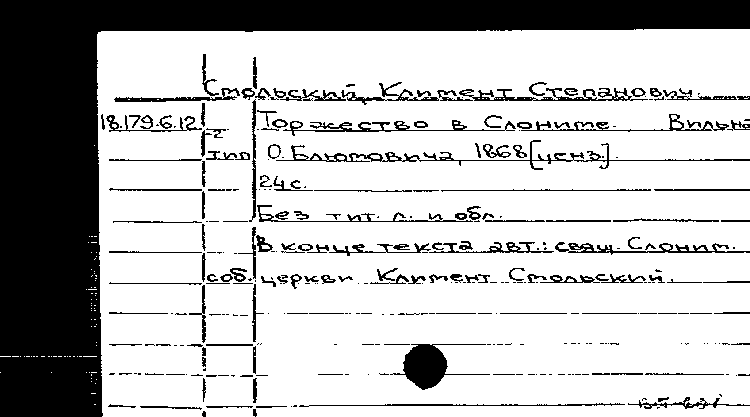 Смольский, Климент Степанович.
18.179.6.12 Торжество в Слониме. Вильна
-2
тип О. Блюмовича, 1868 [ценз.].
24 с.
Без тит. л. и обл.
В конце текста авт.: свящ. Слоним.
соб. церкви Климент Смольский.